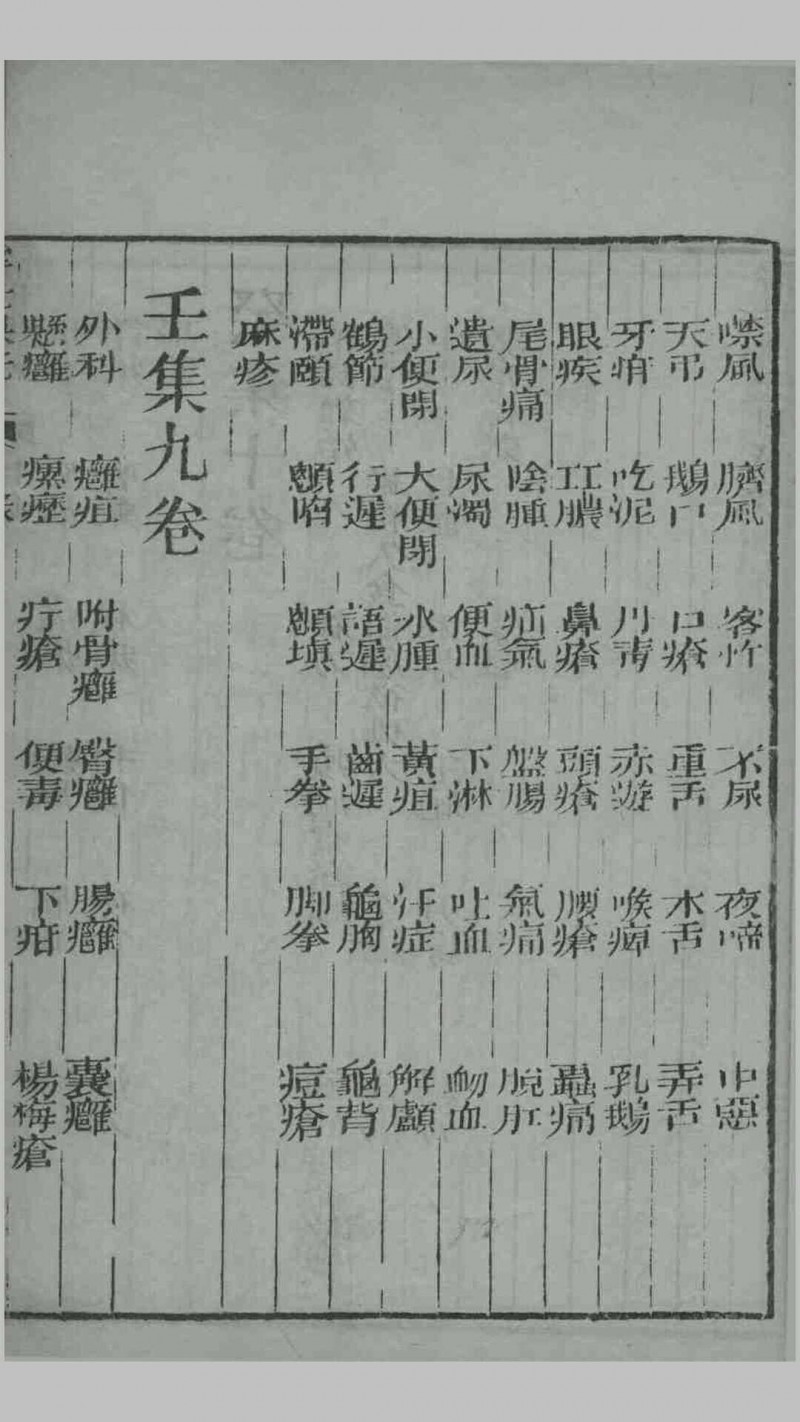 噤風 臍風 客忤 不尿 夜啼 中惡
天弔 鵝口 口瘡 重舌 木舌 弄舌
牙疳 吃泥 丹毒 赤遊 喉痺 乳鵝
眼疾 耳膿 鼻瘡 頭瘡 顋瘡 蟲痛
尾骨痛 陰腫 疝氣 盤腸 氣痛 脫肛
遺尿 尿濁 便血 下淋 吐血 衂血
小便閉 大便閉 水腫 黃疸 汗症 解顱
鶴節 行遲 語遲 齒遲 龜胸 龜背
滯頤 顖陷 顖填 手拳 脚拳 痘瘡
麻疹
壬集九卷
外科 癰疽 咐骨癰 臀癰 腸癰 囊癰
懸癰 瘰癧 疔瘡 便毒 下疳 楊梅瘡